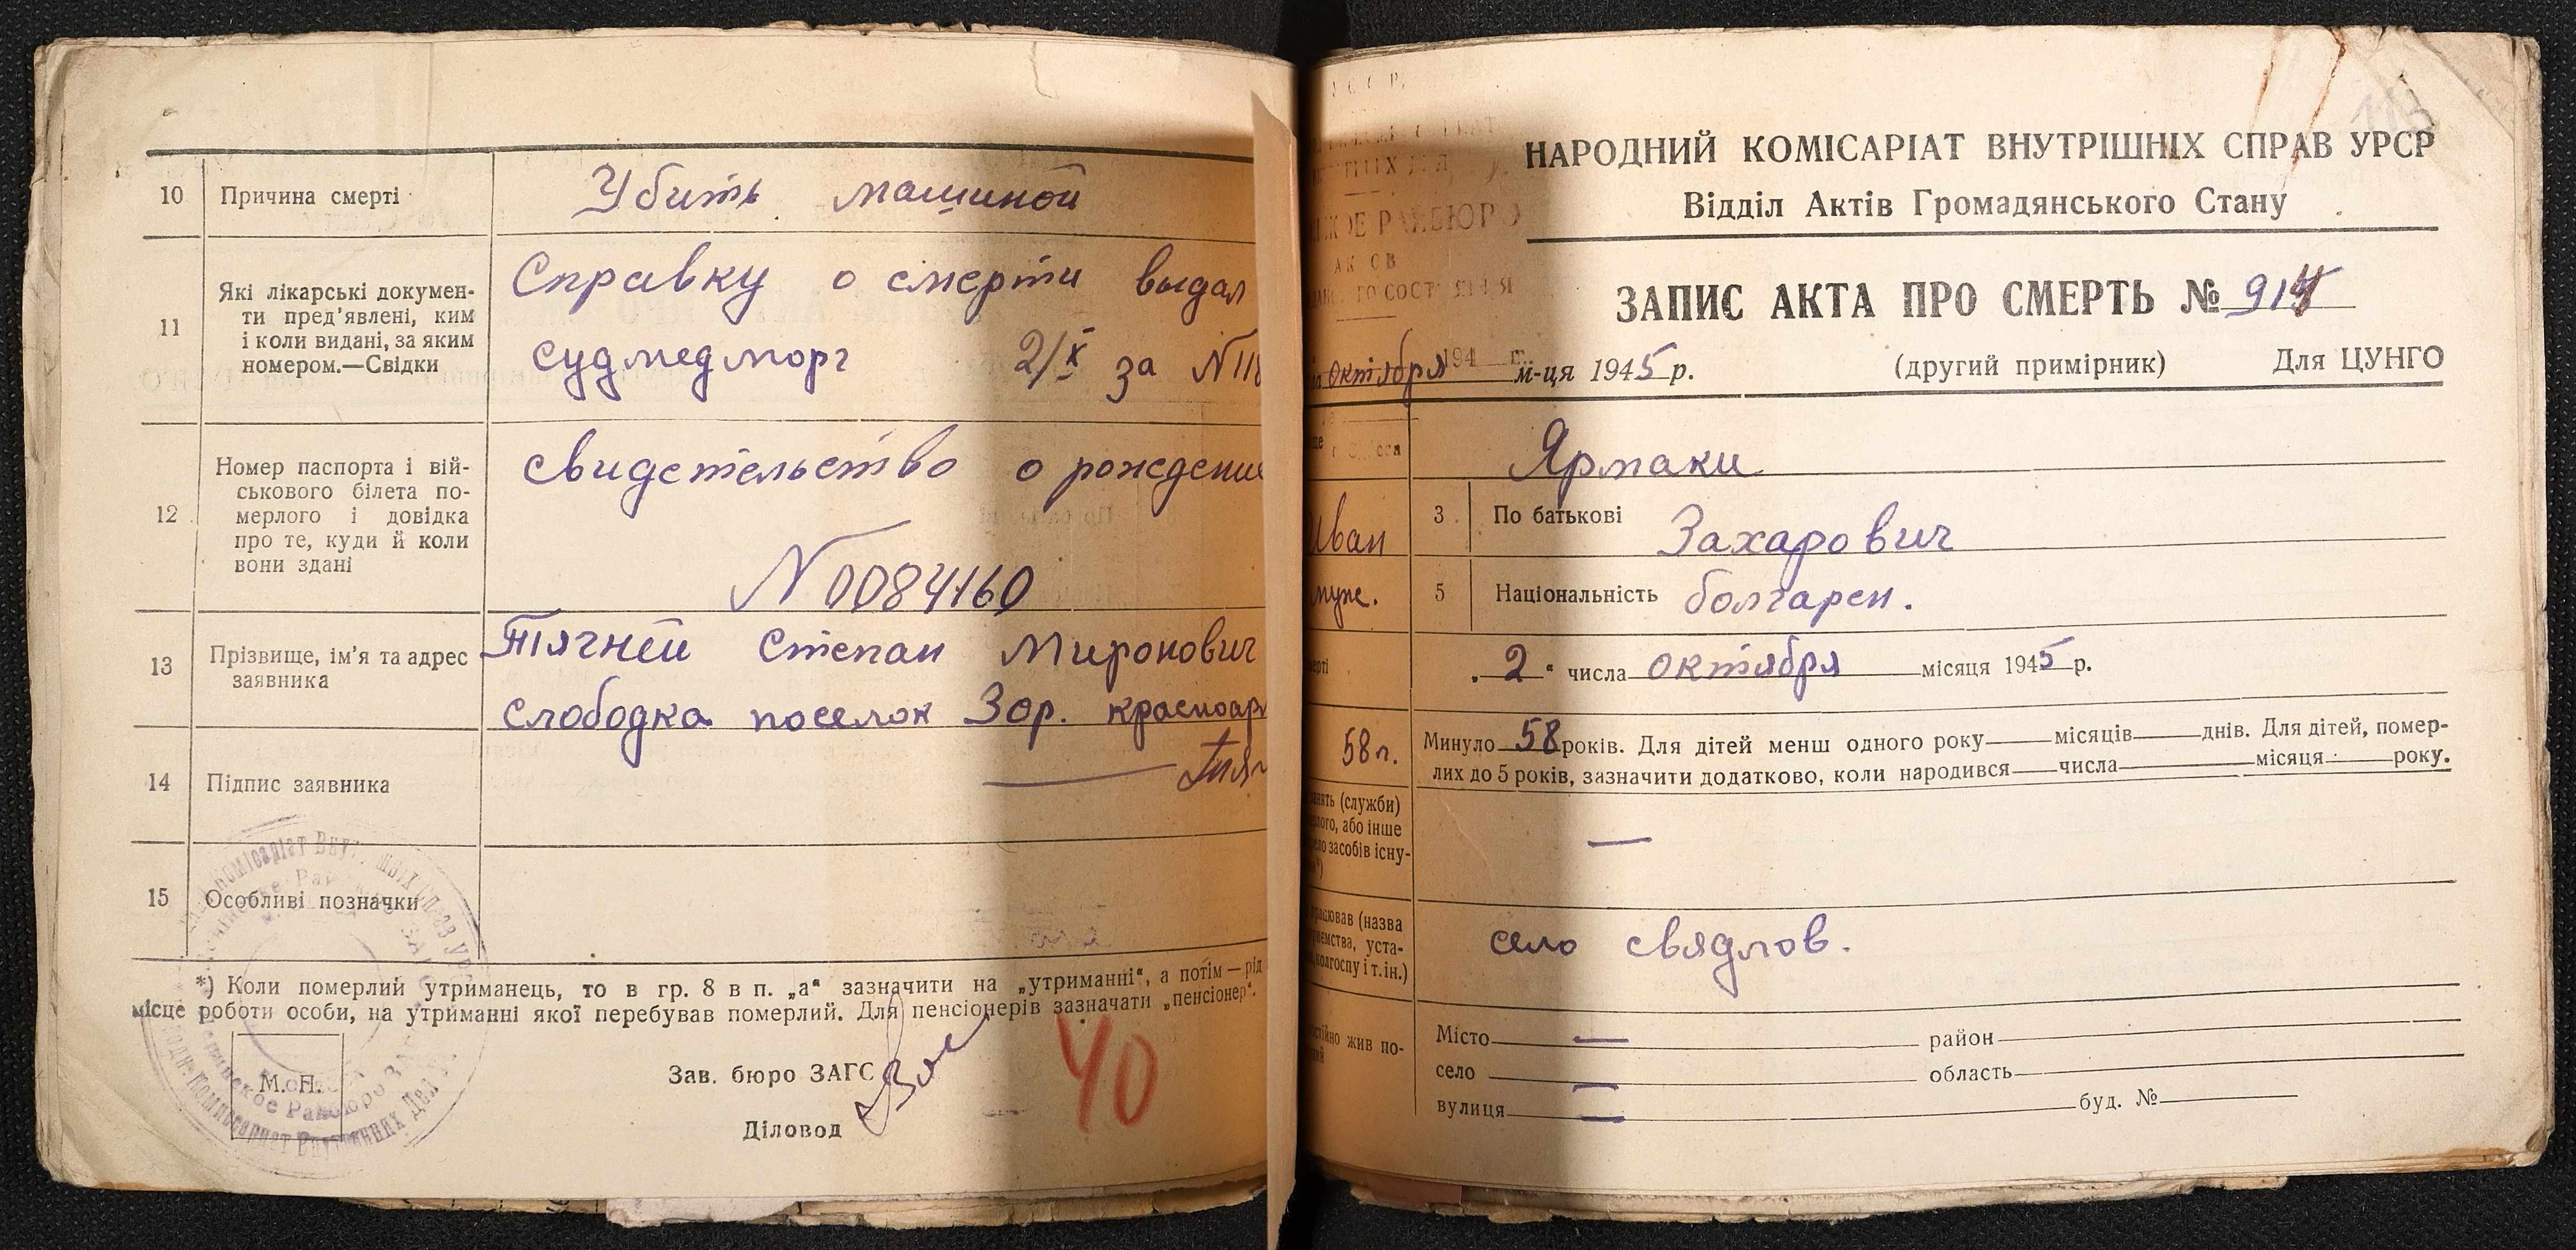 10 Причина смерті Убить машиной
11 Які лікарські докумен-
ти пред'явлені, ким
і коли видані, за яким
номером.—Свідки
Справку о смерти выдал
судмедморг 2/X за N 118
12 Номер паспорта і вій-
ськового білета по-
мерлого і довідка
про те, куди й коли
вони здані
свидетельство о рождении
N 0084160
13 Прізвище, ім'я та адрес
заявника
Тягней Степан Миронович
слободка поселок Зор. красноар
14 Підпис заявника
15 Особливі позначки
*) Коли померлий утриманець, то в гр. 8 в п. „а“ зазначити на „утриманні“, а потім — рід
місце роботи особи, на утриманні якої перебував померлий. Для пенсіонерів зазначати „пенсіонер“.
М. П.
Зав. бюро ЗАГС
Діловод
40
НАРОДНИЙ КОМІСАРІАТ ВНУТРІШНІХ СПРАВ УРСР
Відділ Актів Громадянського Стану
ЗАПИС АКТА ПРО СМЕРТЬ № 914
октября м-ця 1945 р. (другий примірник) Для ЦУНГО
Ярмаки
Иван 3 По батькові Захарович
муж. 5 Національність болгарен.
„2“ числа октября місяця 1945 р.
58 г. Минуло 58 років. Для дітей менш одного року місяців днів. Для дітей, помер-
лих до 5 років, зазначити додатково, коли народився числа місяця року.
(служби)
або інше
засобів існу-
(назва
уста-
колгоспу і т. ін.)
село свядлов.
жив по-
Місто — район
село — область
вулиця — буд. №